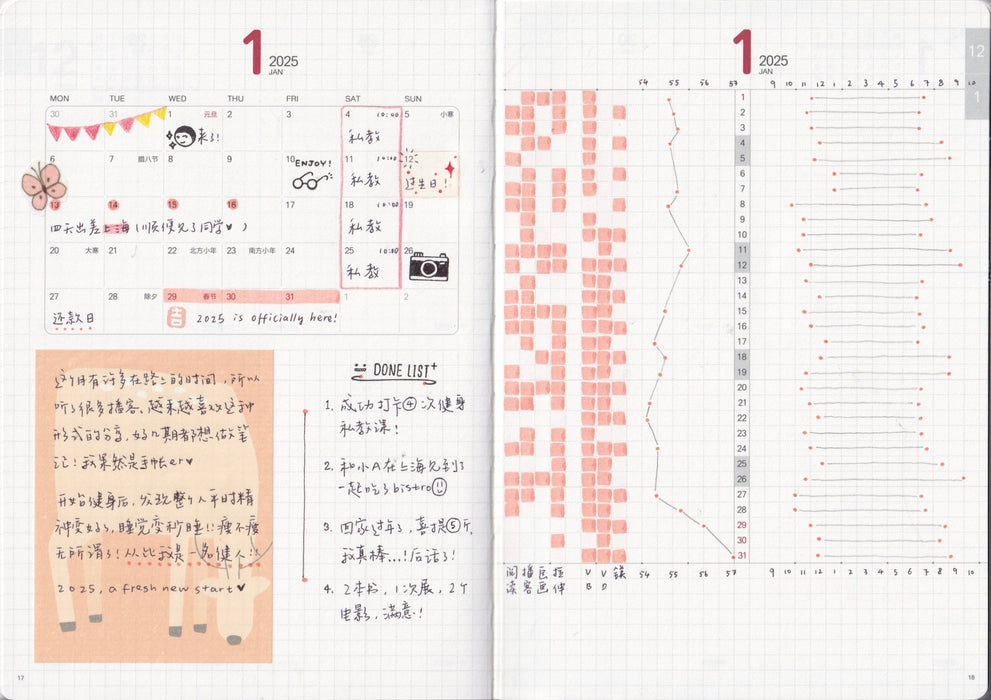 1 2025 JAN
MON TUE WED THU FRI SAT SUN
30 31 1 元旦 2 3 4 10:00 5 小寒
来了! 私教
6 7 腊八节 8 9 10 11 10:00 12
ENJOY! 私教 过生日!
13 14 15 16 17 18 10:00 19
四天出差上海（顺便见了同学♥） 私教
20 大寒 21 22 北方小年 23 南方小年 24 25 10:00 26
私教
27 28 除夕 29 春节 30 31 1 2
还款日 吉 2025 is officially here!
这个月有许多在路上的时间，所以
听了很多播客、越来越喜欢这种
形式的分享，好几期都想做笔
记！我果然是手帐er♥
开始健身后，发现整个人平时精
神变好了，睡觉变秒睡!! 瘦不瘦
无所谓了！从此我是一名健人!!
2025, a fresh new start♥
DONE LIST+
1. 成功打卡④次健身
私教课！
2. 和小A在上海见到了
一起吃了bistro
3. 回家过年了，喜提⑤斤，
我真棒...!后话了！
4. 2本书，1次展，2个
电影，满意！
17
1 2025 JAN
12
1
54 55 56 57 9 10 11 12 1 2 3 4 5 6 7 8 9 10
1
2
3
4
5
6
7
8
9
10
11
12
13
14
15
16
17
18
19
20
21
22
23
24
25
26
27
28
29
30
31
阅读 播客 画 拉伸 VB VD 镁 54 55 56 57 9 10 11 12 1 2 3 4 5 6 7 8 9 10
18